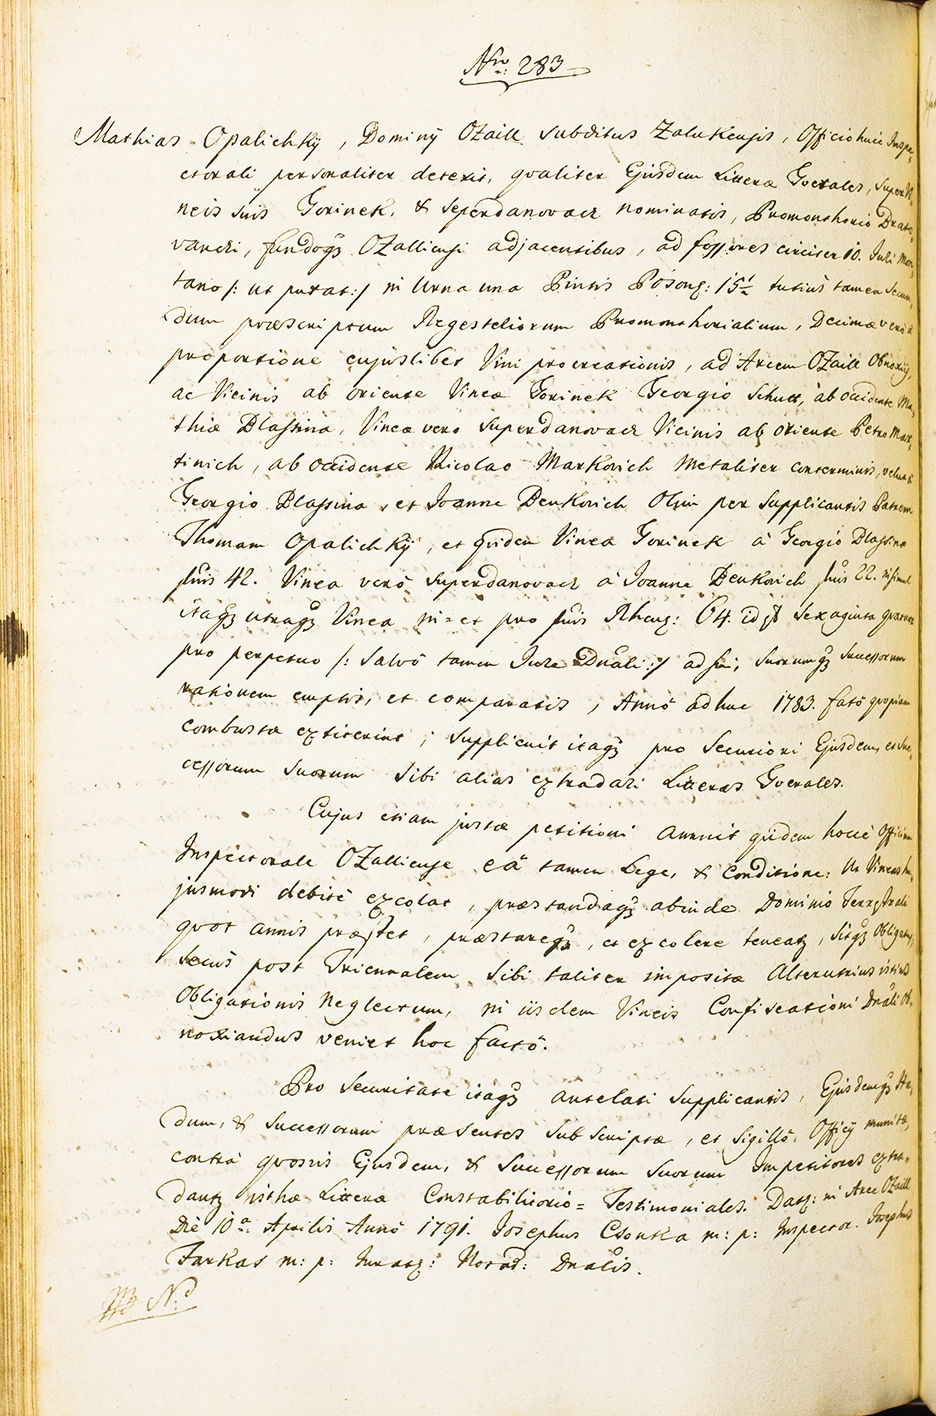 Nro: 283
Mathias Opalichky, Dominÿ OZaill subditus Zalukensis, Officio huic Inspe-
ctorali personaliter detexit, qvaliter Ejusdem Litteræ Gverales, super Vi-
neis suis Gorinek, & Seperdanovacz nominatis, Promonthorio Drasko-
vanchi, fundoq3 OZalliensi adjacentibus, ad fossores circiter 10. Juli Mon-
tano /: ut putat:/ in Urna una Pintis Poson: 15½ tutius tamen secun-
dum præscriptum Regestellorum Promonthorialium, Decimæ vero a
proportione cujuslibet Vini procreationis, ad Arcem OZaill Obnoxijs,
ac Vicinis ab oriente Vineæ Gorinek Georgio Schutt, ab occidente Ma-
thiæ Plassina, Vineæ vero Seperdanovacz Vicinis ab oriente Petro Mar-
tinich, ab occidente Nicolao Markovich Metaliter conterminis, velut a
Georgio Plassina, et Joanne Denkovich Olim per Supplicantis Patrem
Thomam Opalichkÿ, et qvidem Vinea Gorinek à Georgio Plassina
flnis 42. Vinea verò Superdanovacz à Joanne Denkovich flnis 22. insimul
itaq3 utraq3 Vinea in = et pro flnis Rheng: 64. id est sexaginta qvatuor
pro perpetuo /: Salvo tamen Jure Dnali:/ ad sui, suorumq3 successorum
rationem emptis, et comparatis, Anno adhuc 1783. fato qvopiam
combustæ extiterint; Supplicuit itaq3 pro Securiori Ejusdem, et suc-
cessorum suorum sibi alias extradari Litteras Gverales.
Cujus etiam justæ petitioni annuit qvidem hocce Officium
Inspectorale OZalliense eâ tamen Lege, & Conditione: Ut Vineas hu-
jusmodi debite excolat, præstandaq3 abinde Dominio Terrestrali
qvot annis præstet, præstareq3, et excolere teneatur, sitq3 Obligatus,
secus post Triennalem sibi taliter impositæ Alterutrius istius
Obligationis Neglectum, in iisdem Vineis Confiscationi Dnali Ob-
noxiandus veniet hoc facto.
Pro securitate itaq3 antelati Supplicantis, Ejusdemq3 Hæ-
dum, & successorum præsentes subscriptæ, et sigillo Officÿ munitæ,
contra qvosvis Ejusdem, & successorum suorum Impetitores extra-
dantur nisthæ Litteræ Constabilitorio = Testimoniales. Datq: in Arce OZaill
Die 10a. Aprilis Anno 1791. Josephus Csonka m: p: Inspector. Josephus
Farkas m: p: Juratq: Notad: Dnalis.